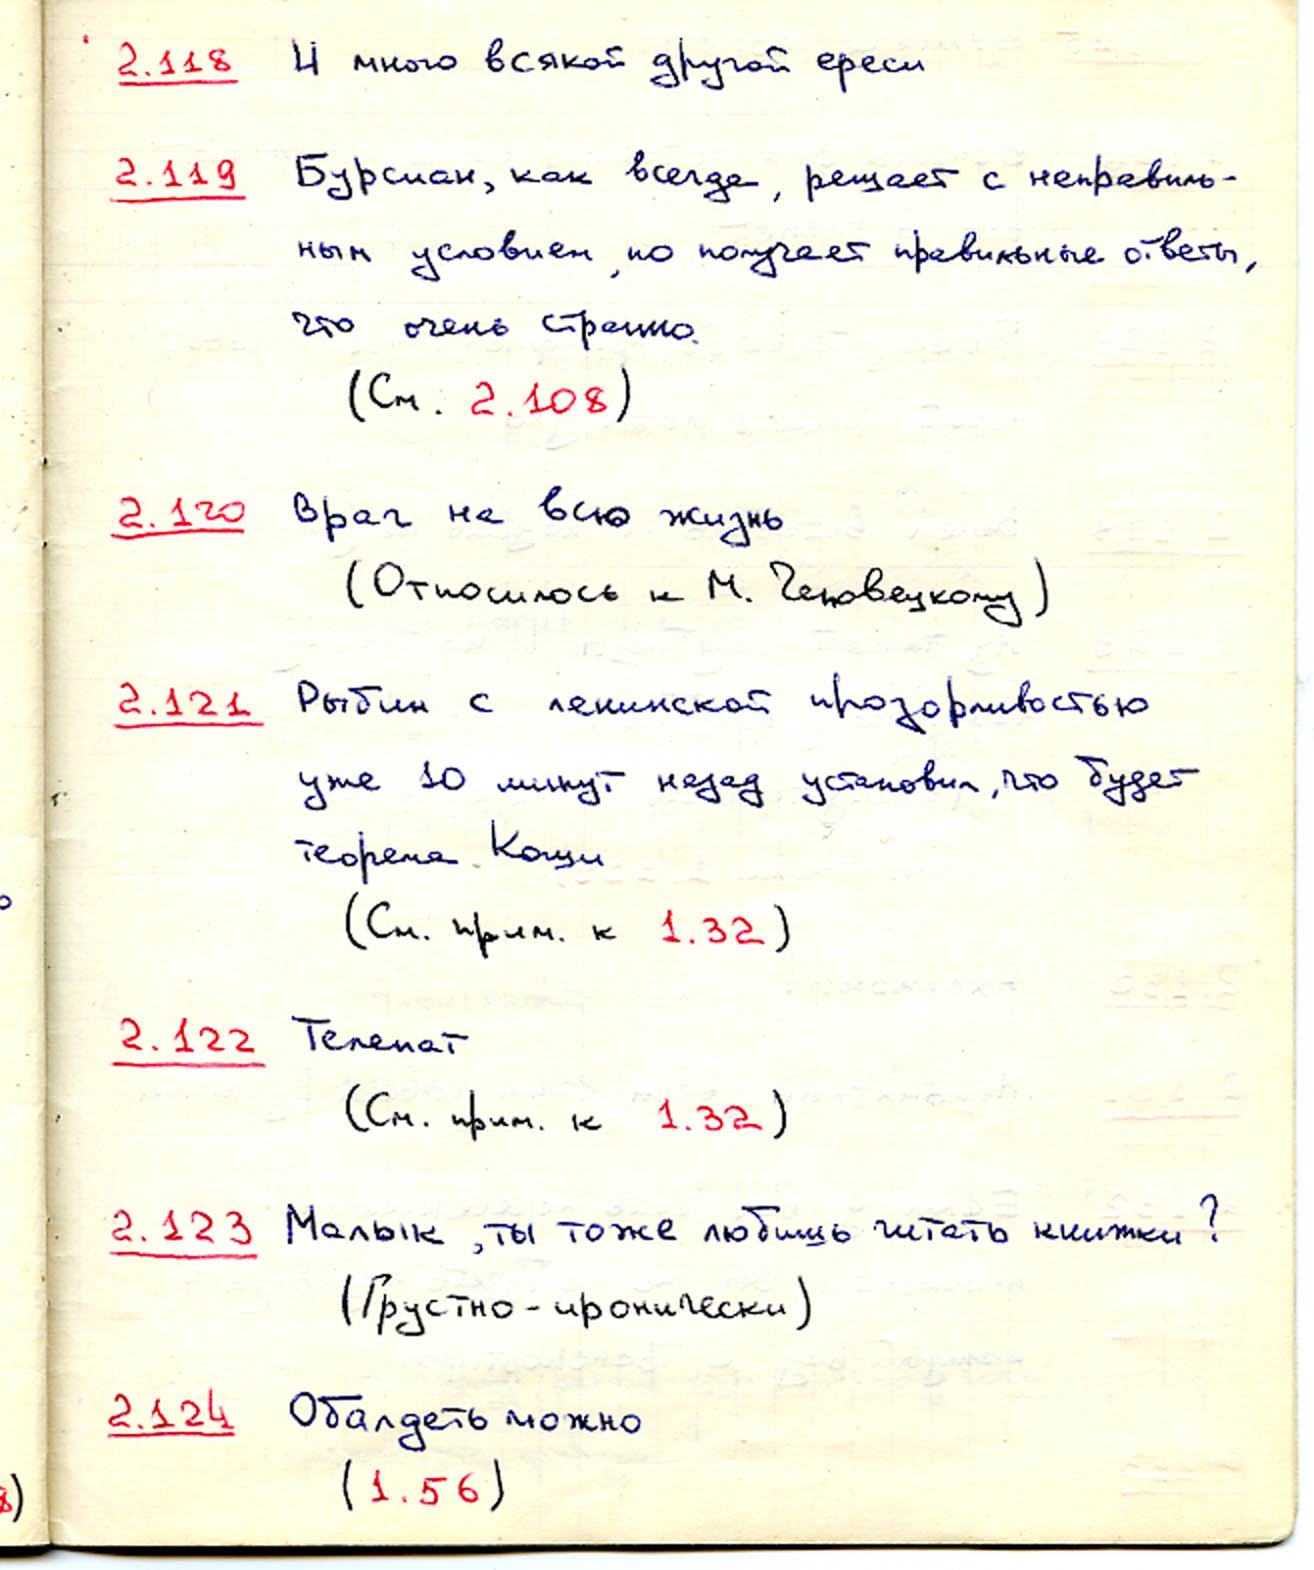 2.118 И много всякой другой ереси
2.119 Бурсиан, как всегда, решает с неправиль-
ным условием, но получает правильные ответы,
что очень странно.
(См. 2.108)
2.120 Враг на всю жизнь
(Относилось к М. Чеповецкому)
2.121 Рыбин с ленинской прозорливостью
уже 10 минут назад установил, что будет
теорема Коши
(См. прим. к 1.32)
2.122 Телепат
(См. прим. к 1.32)
2.123 Малык, ты тоже любишь читать книжки?
(Грустно-иронически)
2.124 Обалдеть можно
(1.56)